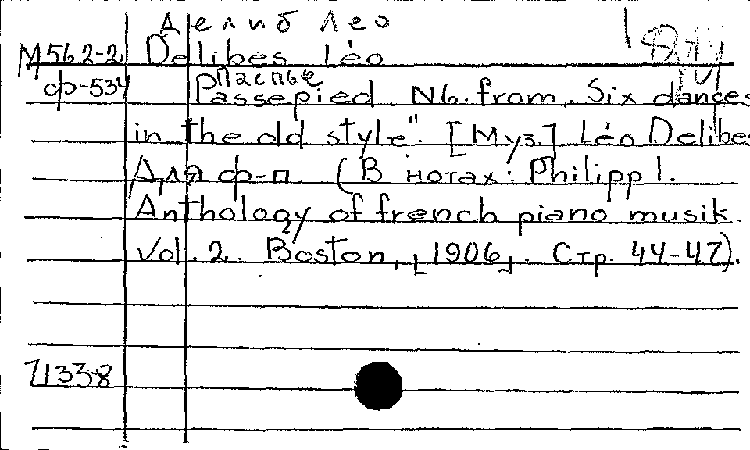 Делиб Лео
М562-2 Delibes Léo
Паспье
ф-534 Passepied N6. from „Six dances
in the old style". [Муз.] Léo Delibes
Для ф-п (В нотах: Philipp I.
Anthology of french piano musik.
Vol. 2. Boston, [1906]. Стр. 44-47).
71338